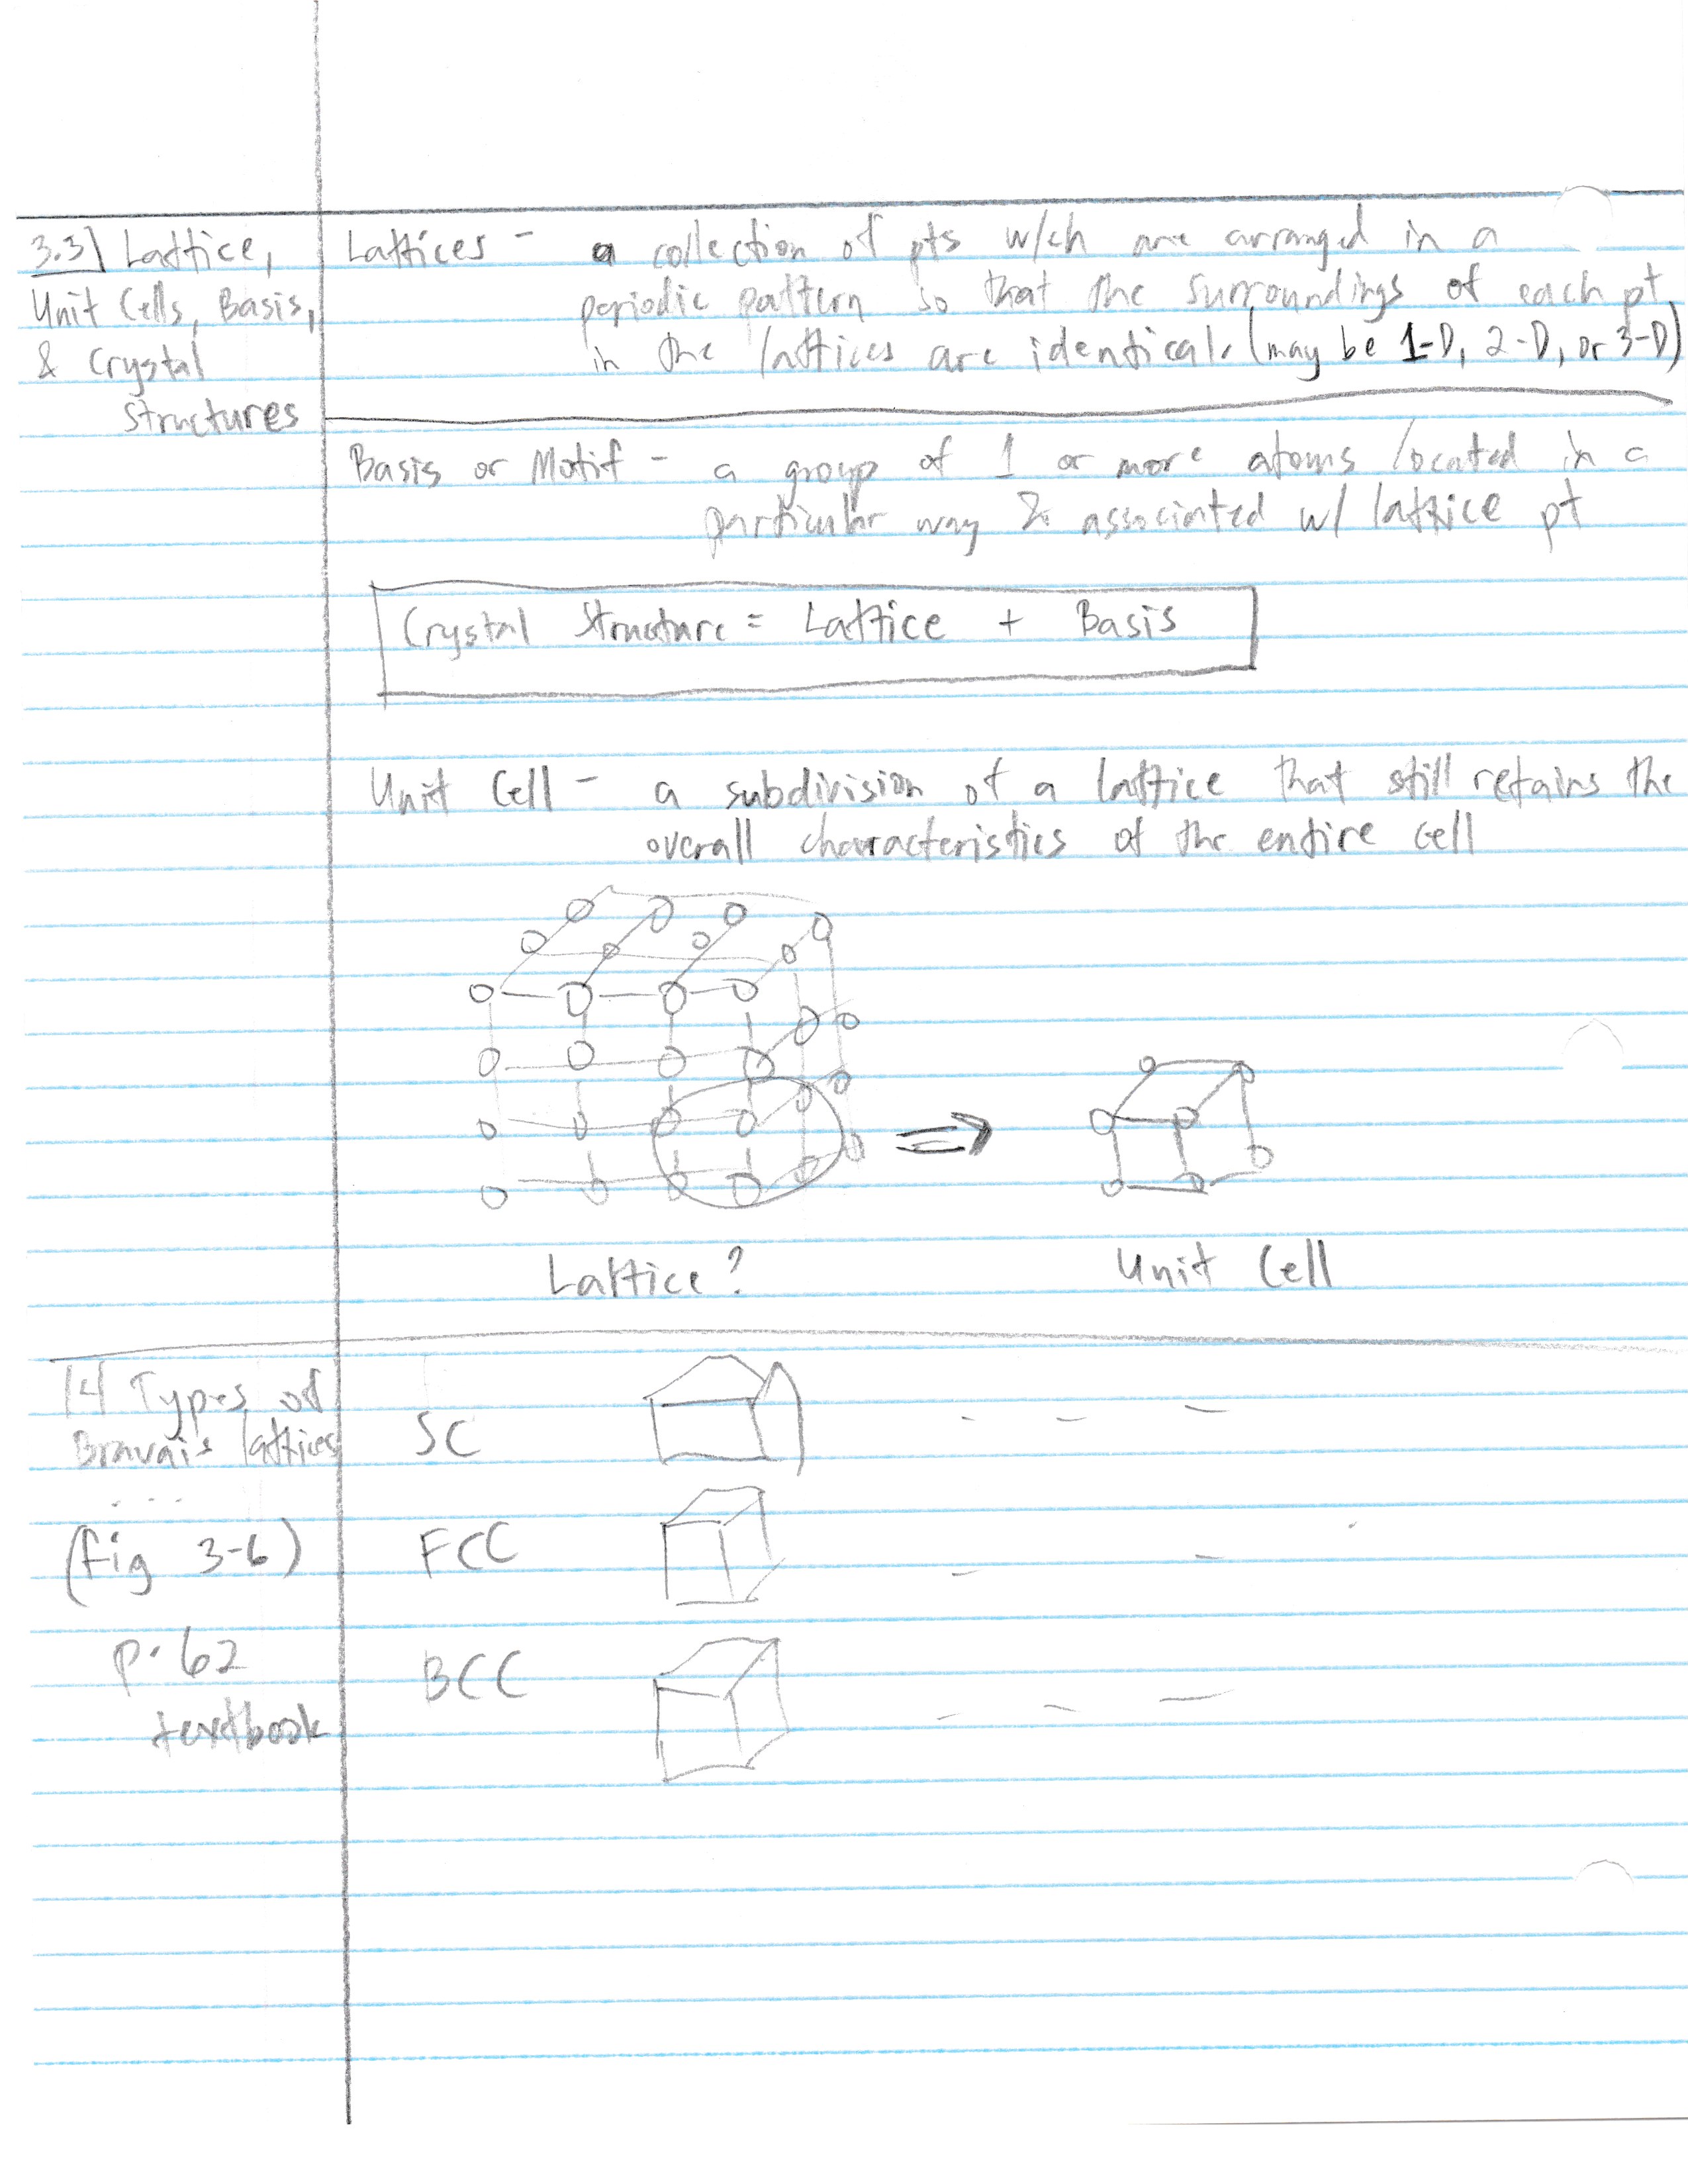 3.3) Lattice,
Unit Cells, Basis,
& Crystal
Structures
Lattices - a collection of pts w/ch are arranged in a
periodic pattern so that the surroundings of each pt
in the lattices are identical. (may be 1-D, 2-D, or 3-D)
Basis or Motif - a group of 1 or more atoms located in a
particular way & associated w/ lattice pt
Crystal Structure = Lattice + Basis
Unit Cell - a subdivision of a lattice that still retains the
overall characteristics of the entire cell
Lattice?
Unit Cell
14 Types of
Bravais lattices
....
(fig 3-6)
p. 62
textbook
SC
FCC
BCC